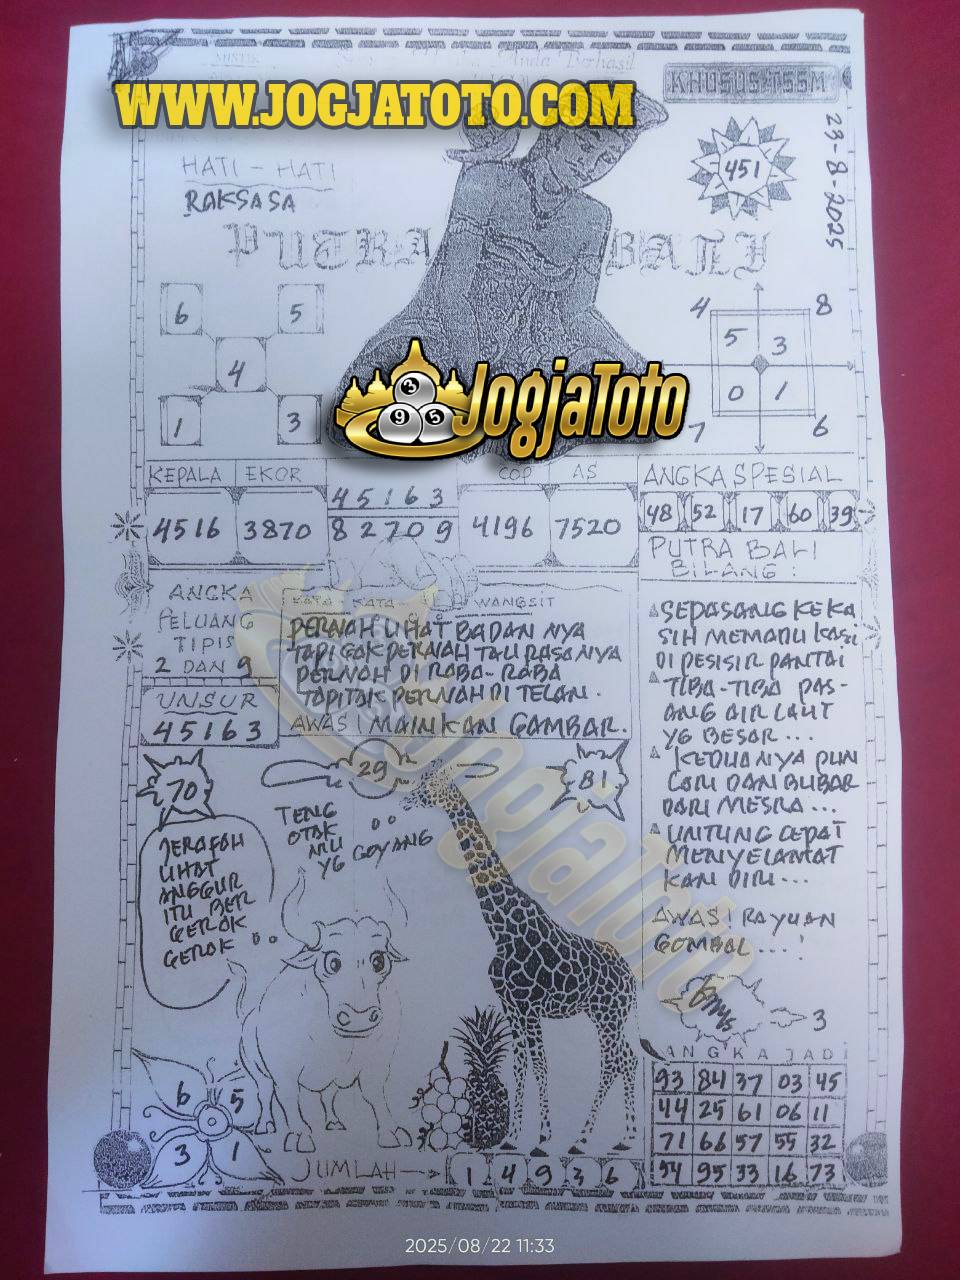 MISTIK
Anda Berhasil
KHUSUS TSSM
WWW.JOGJATOTO.COM
23-8-2025
451
HATI - HATI
RAKSASA
PUTRA BALI
6 5
4
1 3
4 8
5 3
0 1
7 6
JogjaToto
3
9 5
KEPALA EKOR
4516 3870
45163
82709
COP AS
4196 7520
ANGKA SPESIAL
48 52 17 60 39
PUTRA BALI
BILANG :
SEPASANG KEKA
SIH MEMADU KASI
DI PESISIR PANTAI
TIBA-TIBA PAS-
ANG AIR LAUT
YG BESAR ...
KEDUANYA PUN
LARI DAN BUBAR
DARI MESRA ...
UNTUNG CEPAT
MENYELAMAT
KAN DIRI ...
AWAS! RAYUAN
GOMBAL ... !
ANGKA
PELUANG
TIPIS
2 DAN 9
UNSUR
45163
KATA - KATA WANGSIT
PERNAH LIHAT BADAN NYA
TAPI GAK PERNAH TAU RASANYA
PERNAH DI RABA-RABA
TAPI TAK PERNAH DI TELAN.
AWAS MAINKAN GAMBAR.
70
29
81
TENG
OTAK
MU
YG GOYANG
JERAFAH
LIHAT
ANGGUR
ITU BER
GEROK
GEROK ..
JogjaToto
3
6 5
3 1
JUMLAH -> 1 4 9 3 6
ANGKA JADI
93 84 37 03 45
44 25 61 06 11
71 66 57 55 32
54 95 33 16 73
2025/08/22 11:33